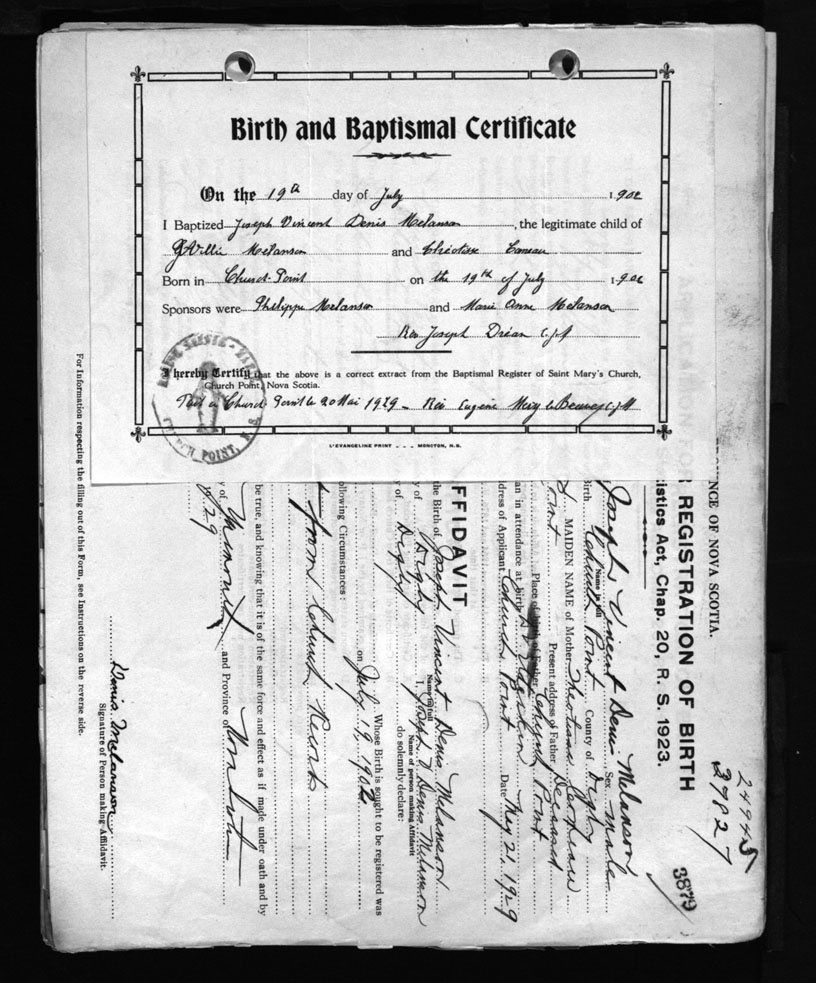 Birth and Baptismal Certificate
On the 19th day of July 1902
I Baptized Joseph Vincent Denis Melanson, the legitimate child of
Willie Melanson and Comeau
Born in Church Point on the 19th of July 1902
Sponsors were Philippe Melanson and Marie Anne Melanson
Rev Joseph Dréan C.J.M
I hereby Certify that the above is a correct extract from the Baptismal Register of Saint Mary's Church,
Church Point, Nova Scotia.
Church Point le 20 Mai 1929 - Rev Eugene C.J.M
CHURCH POINT, N.S.
L'EVANGELINE PRINT - - - MONCTON, N.B.
24945
39827
3879
NCE OF NOVA SCOTIA.
REGISTRATION OF BIRTH
istics Act, Chap. 20, R. S. 1923.
Joseph Vincent Denis Melanson Sex Male
Name in full
Birth Church Point County of Digby
MAIDEN NAME of Mother
Point Present address of Father Deceased
Place of Birth of Father Church Point
an in attendance at birth
ddress of Applicant Church Point Date May 21, 1929
FFIDAVIT
the Birth of Joseph Vincent Denis Melanson
Name in full
y of Digby I, Joseph V Denis Melanson
Name of person making Affidavit
y of Digby do solemnly declare:
Whose Birth is sought to be registered was
on July 19, 1902
ollowing Circumstances:
from Church Records
be true, and knowing that it is of the same force and effect as if made under oath and by
y of Yarmouth and Province of Nova Scotia
1929
Denis Melanson
Signature of Person making Affidavit.
For Information respecting the filling out of this Form, see Instructions on the reverse side.